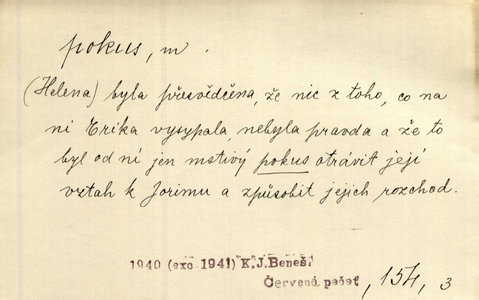 pokus, m.
(Helena) byla přesvědčena, že nic z toho, co na
ni Erika vysypala, nebyla pravda a že to
byl od ní jen mstivý pokus otrávit její
vztah k Jorimu a způsobit jejich rozchod.
1940 (exc. 1941) K.J.Beneš:
Červená pečeť, 154, 3